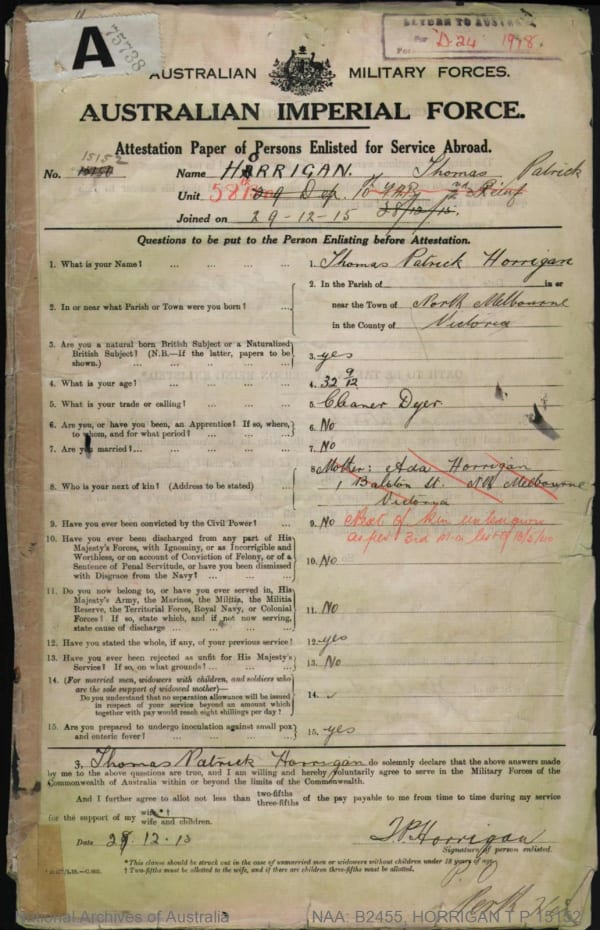 A
75738
RETURN TO AUST
For D.24 1918.
AUSTRALIAN MILITARY FORCES.
AUSTRALIAN IMPERIAL FORCE.
Attestation Paper of Persons Enlisted for Service Abroad.
15152
No. Name HORRIGAN. Thomas Patrick
Unit 58th 29 Dep.
Joined on 29-12-15 28/12/15.
Questions to be put to the Person Enlisting before Attestation.
1. What is your Name? ... ... ... ... 1. Thomas Patrick Horrigan
2. In the Parish of in or
2. In or near what Parish or Town were you born? ... near the Town of North Melbourne
in the County of Victoria
3. Are you a natural born British Subject or a Naturalized
British Subject? (N.B.—If the latter, papers to be
shown.) ... ... ... ... 3. yes
4. What is your age? ... ... ... ... 4. 32 9/12
5. What is your trade or calling? ... ... ... 5. Cleaner Dyer
6. Are you, or have you been, an Apprentice? If so, where,
to whom, and for what period? ... ... 6. No
7. Are you married?... ... ... ... 7. No
8. Mother: Ada Horrigan
8. Who is your next of kin? (Address to be stated) ... 1 St. Nth Melbourne
Victoria
9. Have you ever been convicted by the Civil Power? ... 9. No Next of kin unknown
as per 3rd M.D. list of
10. Have you ever been discharged from any part of His
Majesty's Forces, with Ignominy, or as Incorrigible and
Worthless, or on account of Conviction of Felony, or of a
Sentence of Penal Servitude, or have you been dismissed
with Disgrace from the Navy? ... ... 10. No
11. Do you now belong to, or have you ever served in, His
Majesty's Army, the Marines, the Militia, the Militia
Reserve, the Territorial Force, Royal Navy, or Colonial
Forces? If so, state which, and if not now serving,
state cause of discharge ... ... ... 11. No
12. Have you stated the whole, if any, of your previous service? 12. yes
13. Have you ever been rejected as unfit for His Majesty's
Service? If so, on what grounds? ... ... 13. No
14. (For married men, widowers with children, and soldiers who
are the sole support of widowed mother)—
Do you understand that no separation allowance will be issued
in respect of your service beyond an amount which
together with pay would reach eight shillings per day? 14.
15. Are you prepared to undergo inoculation against small pox
and enteric fever? ... ... ... 15. yes
3, Thomas Patrick Horrigan do solemnly declare that the above answers made
by me to the above questions are true, and I am willing and hereby voluntarily agree to serve in the Military Forces of the
Commonwealth of Australia within or beyond the limits of the Commonwealth.
And I further agree to allot not less than two-fifths three-fifths of the pay payable to me from time to time during my service
for the support of my wife.† wife and children.
Date 29.12.15 T P Horrigan
Signature of person enlisted.
*This clause should be struck out in the case of unmarried men or widowers without children under 18 years of age.
† Two-fifths must be allotted to the wife, and if there are children three-fifths must be allotted.
National Archives of Australia NAA: B2455, HORRIGAN T P 15152